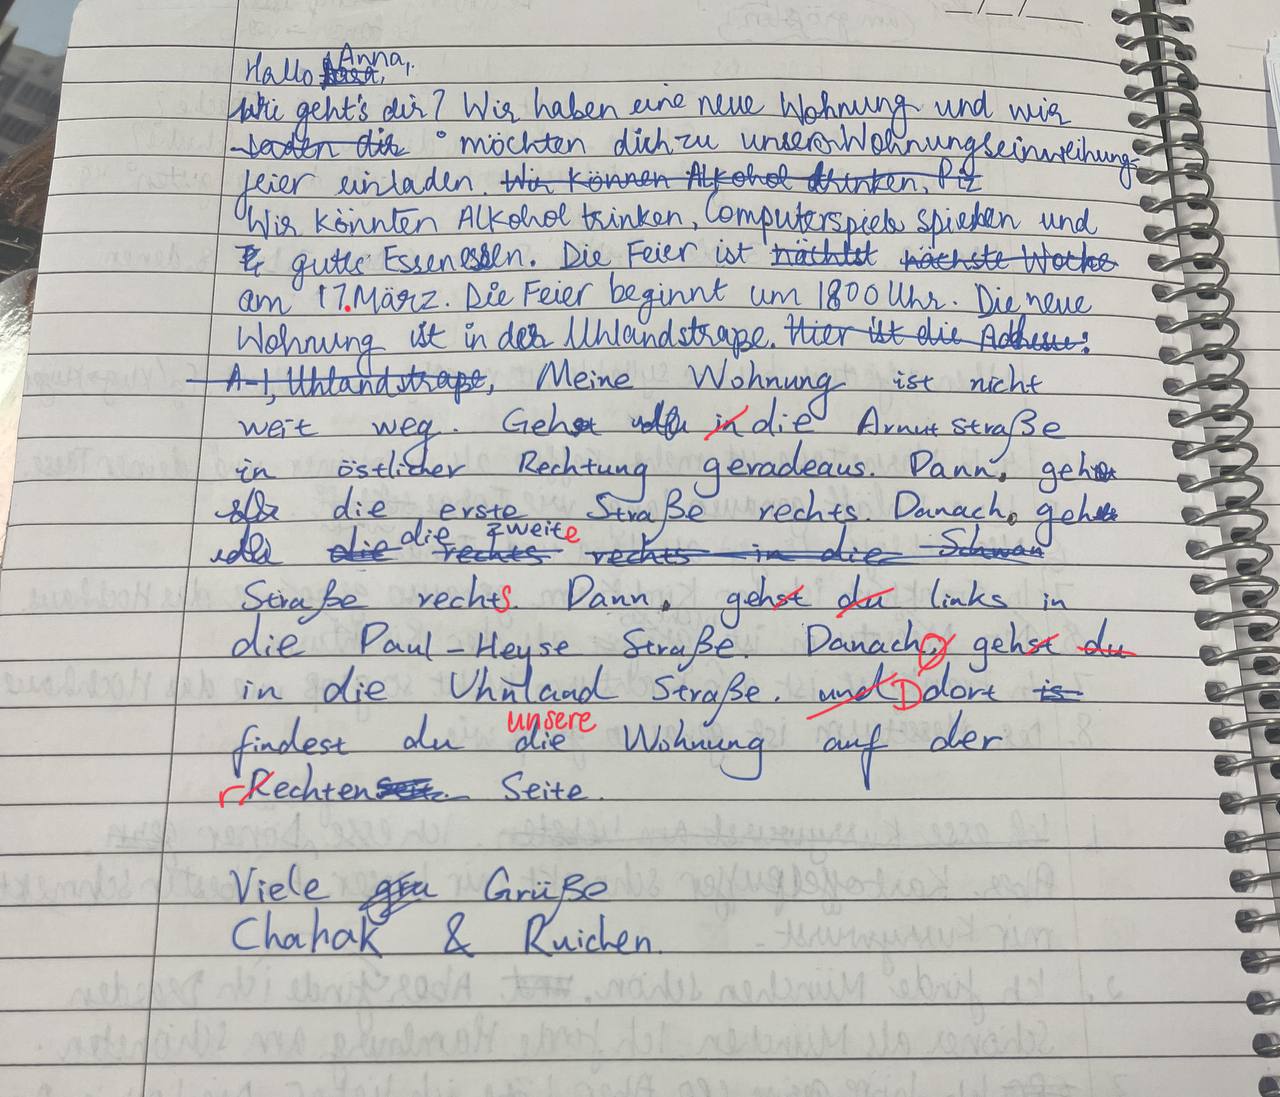 Hallo Anna,
Wie geht's dir? Wir haben eine neue Wohnung und wir
laden dir möchten dich zu unserer Wohnungseinweihung-
feier einladen. Wir können Alkohol trinken, Piz
Wir könnten Alkohol trinken, Computerspiele spielen und
gutes Essen essen. Die Feier ist nächtst nächste Woche
am 17.März. Die Feier beginnt um 1800 Uhr. Die neue
Wohnung ist in der Uhlandstraße. Hier ist die Adresse:
A-1, Uhlandstraße, Meine Wohnung ist nicht
weit weg. Gehst in die Arnut straße
in östlicher Rechtung geradeaus. Dann, geh
die erste Straße rechts. Danach, geh
die zweite
die rechts rechts in die Schwan
Straße rechts. Dann, gehst du links in
die Paul-Heyse Straße. Danach, gehst du
in die Uhnland Straße. und Ddort is
unsere
findest du die Wohnung auf der
rRechten Seite.
Viele Grü Grüße
Chahak & Ruichen.